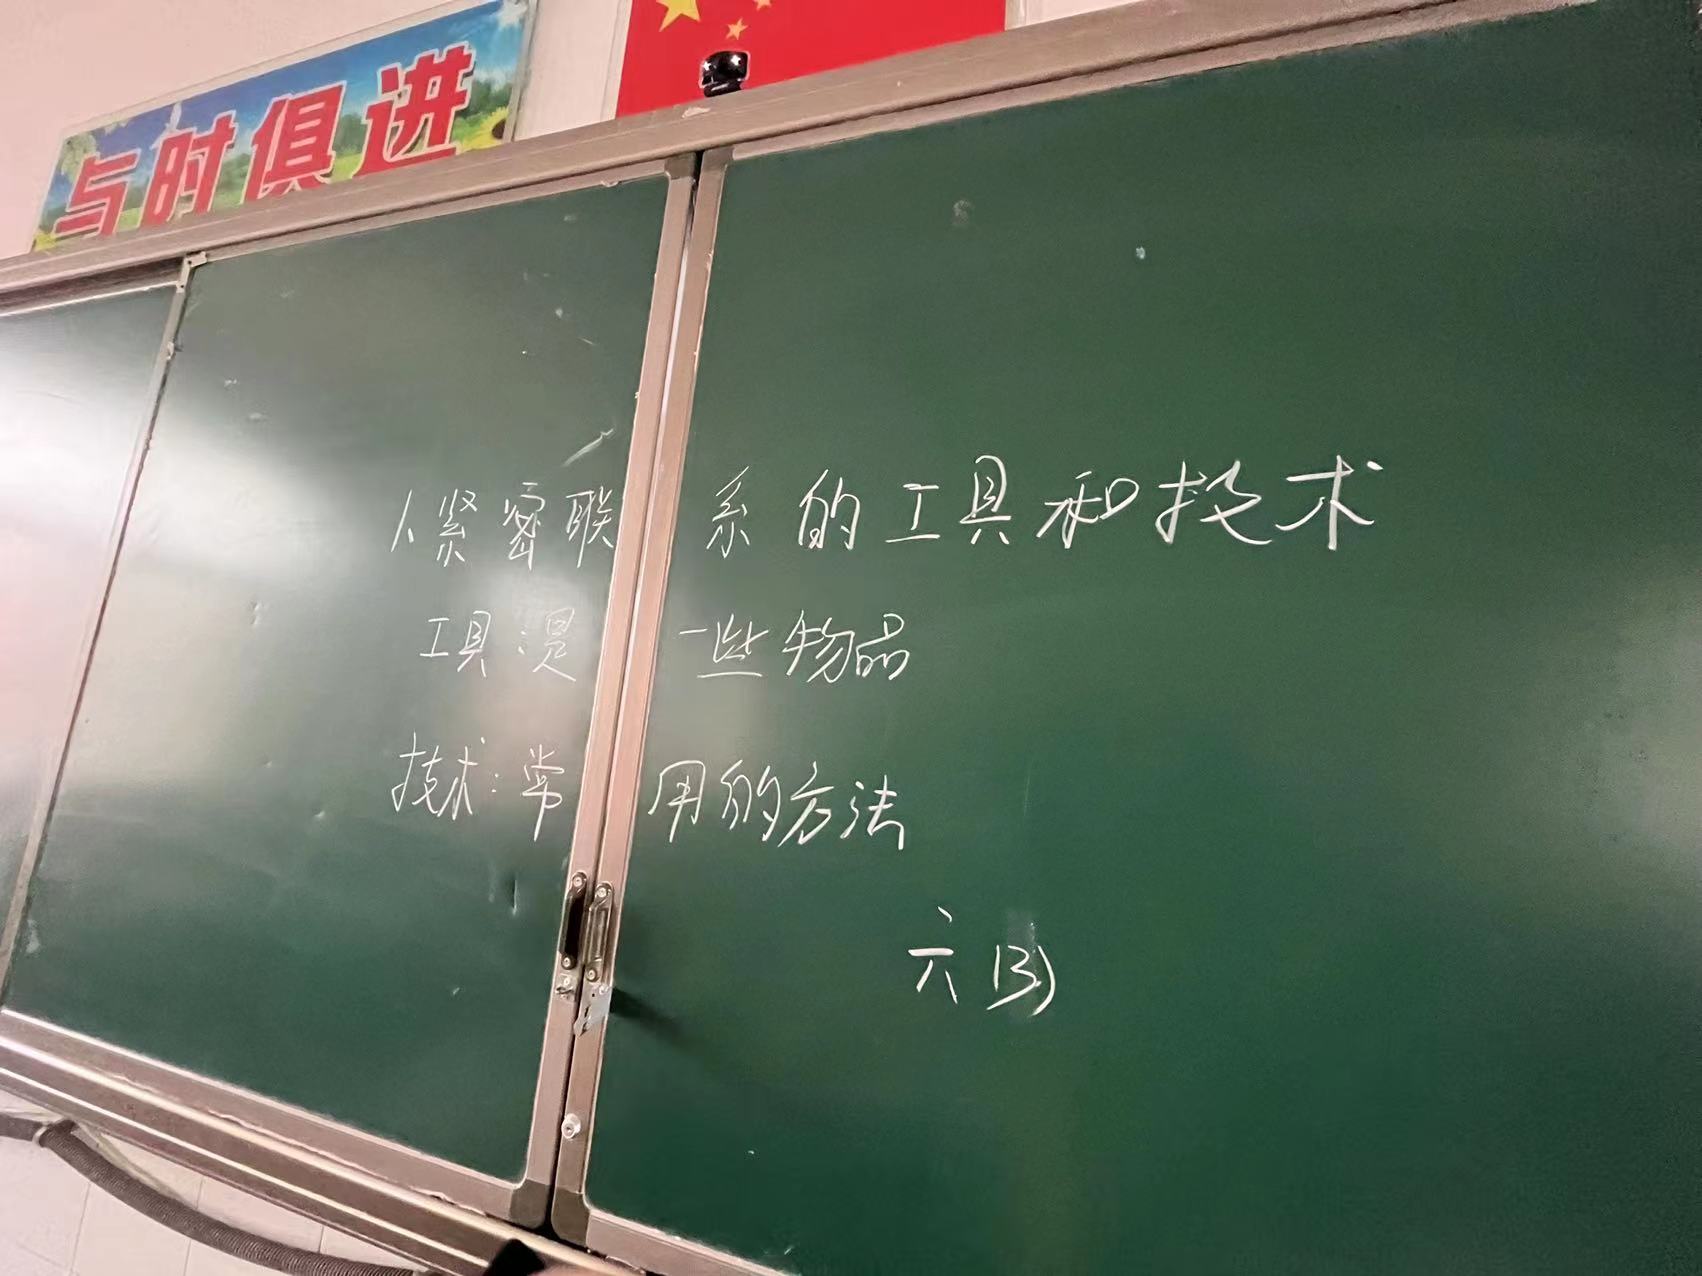 与时俱进
1、紧密联系的工具和技术
工具:是一些物品
技术:常用的方法
六(3)